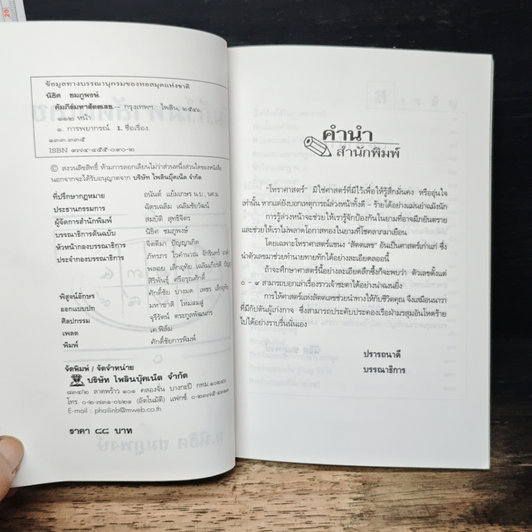 ข้อมูลทางบรรณานุกรมของหอสมุดแห่งชาติ
นิธิศ ชมภูพงษ์
คัมภีร์มหาสัตตเลข.-- กรุงเทพฯ : ไพลิน, ๒๕๔๖.
๑๑๒ หน้า
๑. การพยากรณ์. I. ชื่อเรื่อง.
๑๓๓.๓๓๕
ISBN
© สงวนลิขสิทธิ์ ห้ามการลอกเลียนไม่ว่าส่วนหนึ่งส่วนใดของหนังสือ
นอกจากจะได้รับอนุญาตจาก บริษัท ไพลินบุ๊คเน็ต จำกัด
ที่ปรึกษากฎหมาย อนันต์ แย้มเกษร น.บ., นศ.ม.
ประธานกรรมการ ฉัตรเฉลิม เฉลิมชัยวัฒน์
ผู้จัดการสำนักพิมพ์ สมบัติ สุทธิจิตร
บรรณาธิการต้นฉบับ นิธิศ ชมภูพงษ์
หัวหน้ากองบรรณาธิการ จิตติมา ปัญญาเกิด
ประจำกองบรรณาธิการ ภัทภวร ไวคำนวณ
พลอย เล็กอุทัย
สิริพันธุ์ ศรีอรุณศักดิ์
พิสูจน์อักษร ศักดิ์ชัย
ออกแบบปก มหาชาติ โห่มสมสู
ศิลปกรรม จุรีรัตน์ ตระกูลพัฒนกร
เพลต เค.ฟิล์ม
พิมพ์ ศักดิ์ชัยการพิมพ์
จัดพิมพ์ / จัดจำหน่าย
บริษัท ไพลินบุ๊คเน็ต จำกัด
ลาดพร้าว ๑๐๑ คลองจั่น บางกะปิ กทม
E-mail : phailinb@mweb.co.th
ราคา ๘๘ บาท
คำนำ
สำนักพิมพ์
"โหราศาสตร์" มิใช่ศาสตร์ที่มีไว้เพื่อให้รู้สึกมั่นคง หรืออุ่นใจ
เท่านั้น หากแต่ยังบอกเหตุการณ์ล่วงหน้าทั้งดี - ร้ายได้อย่างแม่นยำอีก
การรู้ล่วงหน้าจะช่วยให้เรารู้จักป้องกันในยามที่อาจมีภยันตราย
และช่วยให้เราไม่พลาดโอกาสทองในยามที่โชคลาภมาเยือน
โดยเฉพาะโหราศาสตร์แขนง "สัตตเลข" อันเป็นศาสตร์เก่าแก่ ซึ่ง
นำตัวเลขมาช่วยทำนายทายทักได้อย่างละเอียดลออนี้
ถ้าจะศึกษาศาสตร์นี้อย่างละเอียดลึกซึ้งก็จะพบว่า ตัวเลขตั้งแต่
๑ - ๗ สามารถบอกเล่าเรื่องราวเจ้าชะตาได้อย่างน่าฉงนยิ่ง
การให้ศาสตร์แห่งสัตตเลขช่วยนำทางให้กับชีวิตคุณ จึงเสมือนนาวา
ที่มีกัปตันผู้เก่งกาจ ซึ่งสามารถประคับประคองเรือฝ่ามรสุมอันโหดร้าย
ไปได้อย่างราบรื่นนั่นเอง
ปรารถนาดี
บรรณาธิการ